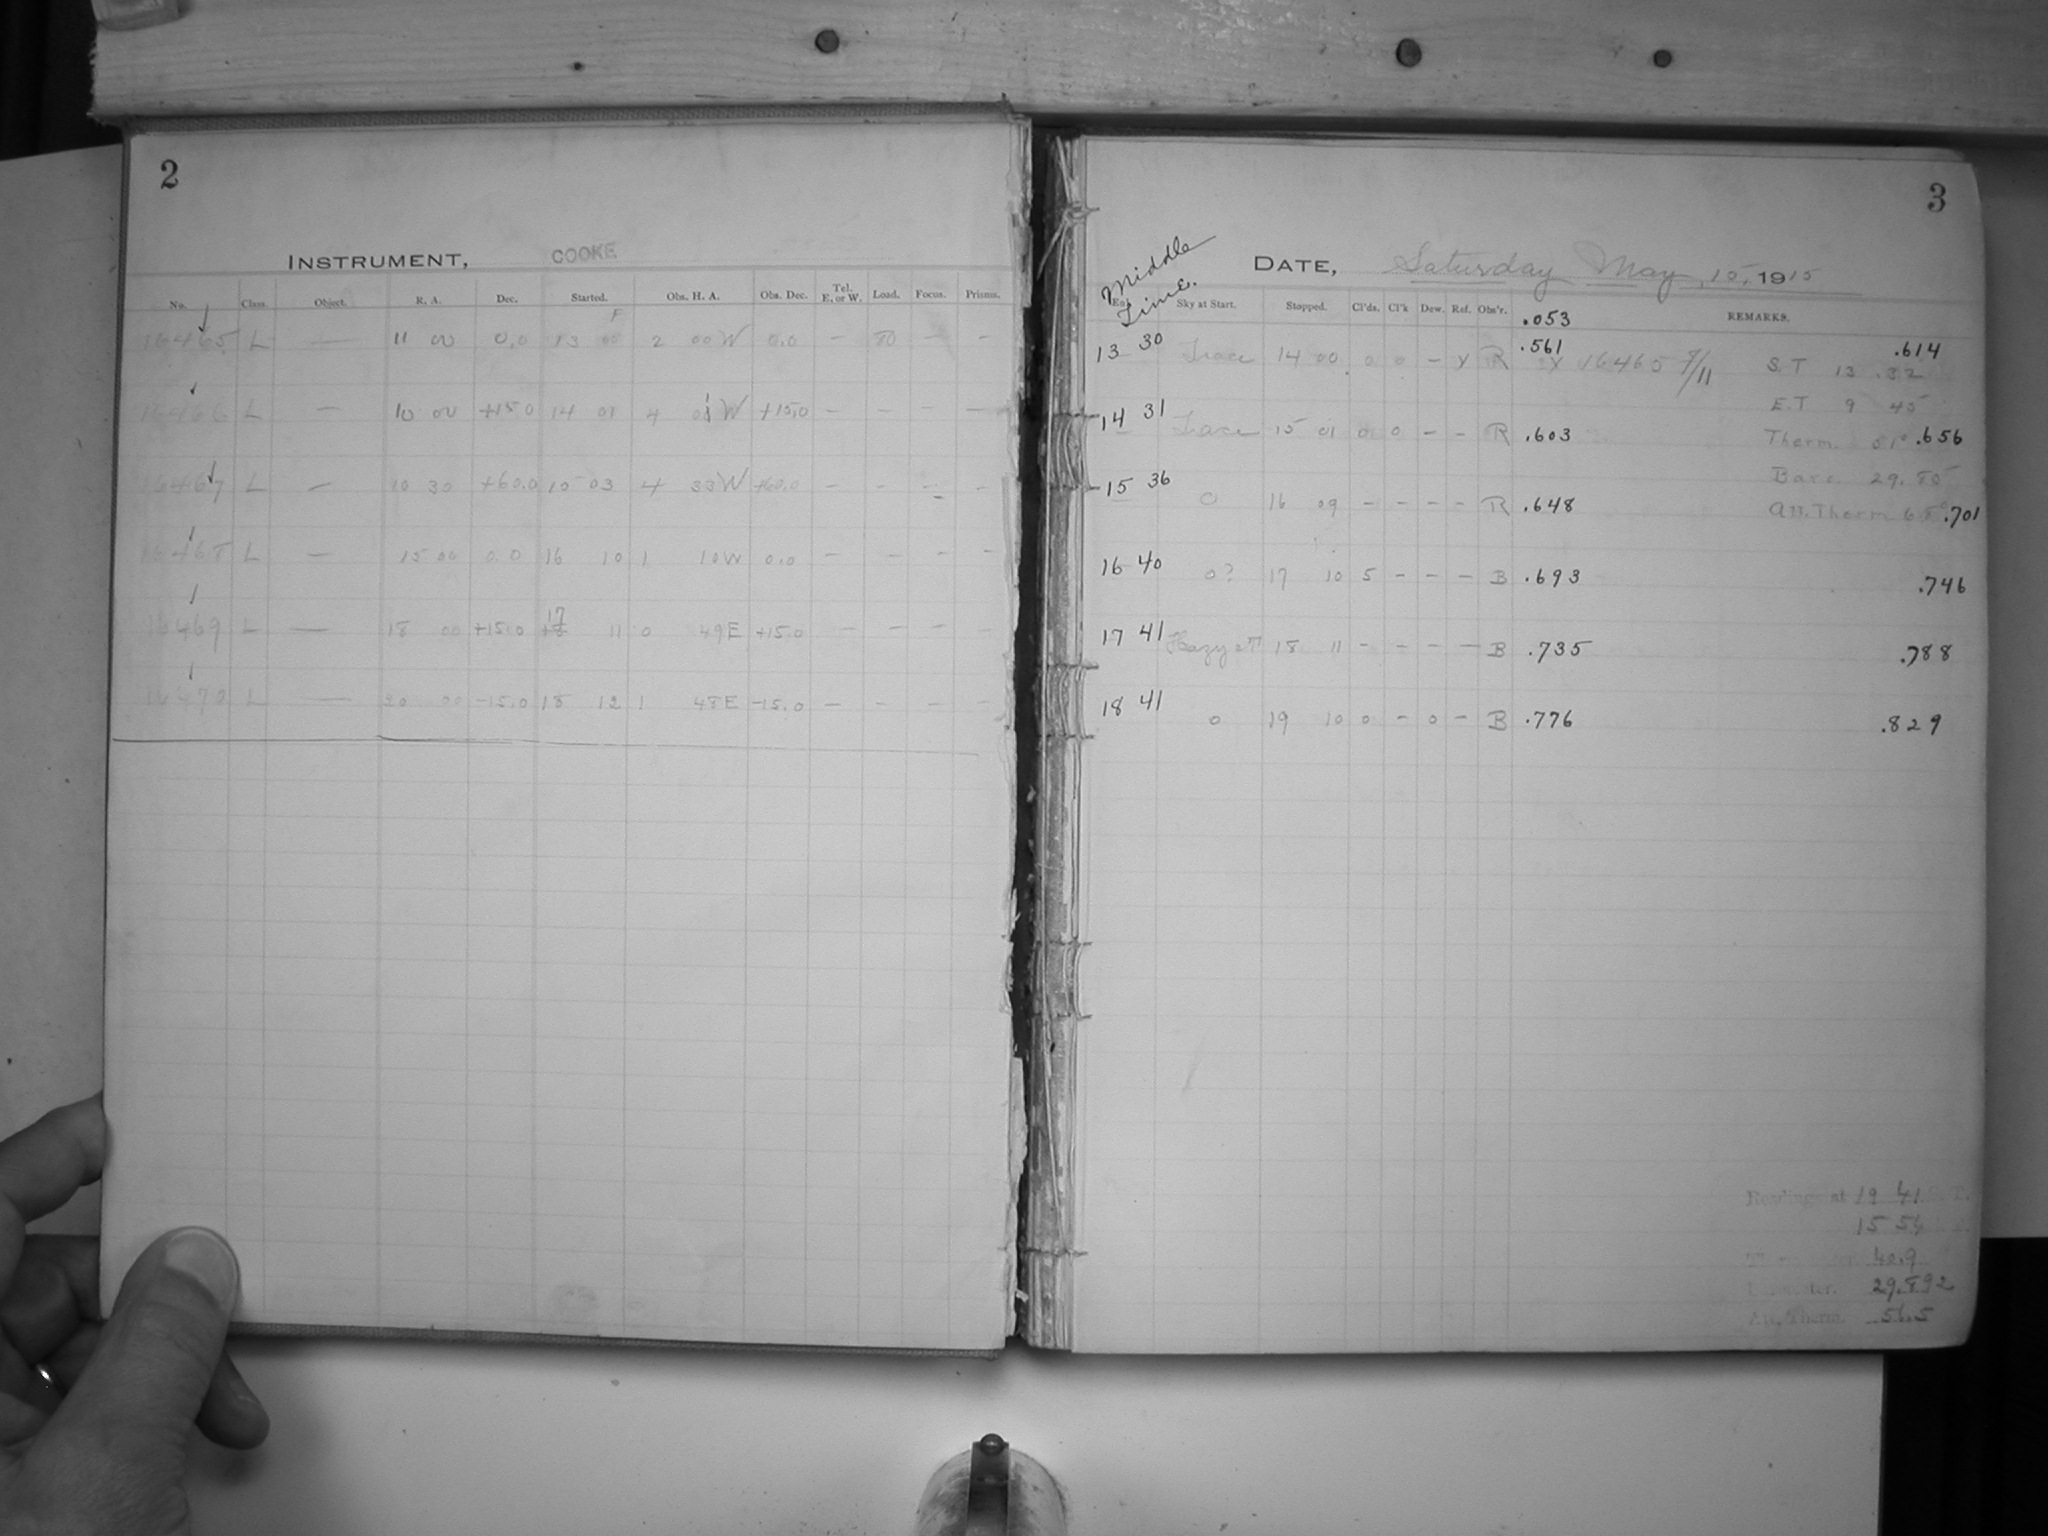 2
INSTRUMENT, COOKE
No. Class. Object. R. A. Dec. Started. Obs. H. A. Obs. Dec. Tel. E. or W. Load. Focus. Prisms.
16465 L — 11 00 0.0 13 00 2 00 W 0.0 — 80 — —
16466 L — 10 00 +15.0 14 01 4 01 W +15.0 — — — —
16467 L — 10 30 +60.0 15 03 4 33 W +60.0 — — — —
16468 L — 15 00 0.0 16 10 1 10 W 0.0 — — — —
16469 L — 18 00 +15.0 17 11 0 49 E +15.0 — — — —
16470 L — 20 00 -15.0 18 12 1 48 E -15.0 — — — —
3
DATE, Saturday May, 15, 1915
Middle Time.
Sky at Start. Stopped. Cl'ds. Cl'k Dew. Ref. Obs'r. REMARKS.
.053
13 30 Trace 14 00 0 0 — Y R .561 16465 7/11 S.T 13 .32 .614
E.T 9 45
14 31 Trace 15 01 0 0 — — R .603 Therm. .656
Baro 29.80
15 36 0 16 09 — — — — R .648 Att. Therm .701
16 40 0? 17 10 5 — — — B .693 .746
17 41 Hazy 18 11 — — — — B .735 .788
18 41 0 19 10 0 — 0 — B .776 .829
Readings at 19 41 S. T.
15 54
40.9
29.892
Att. Therm. 56.5